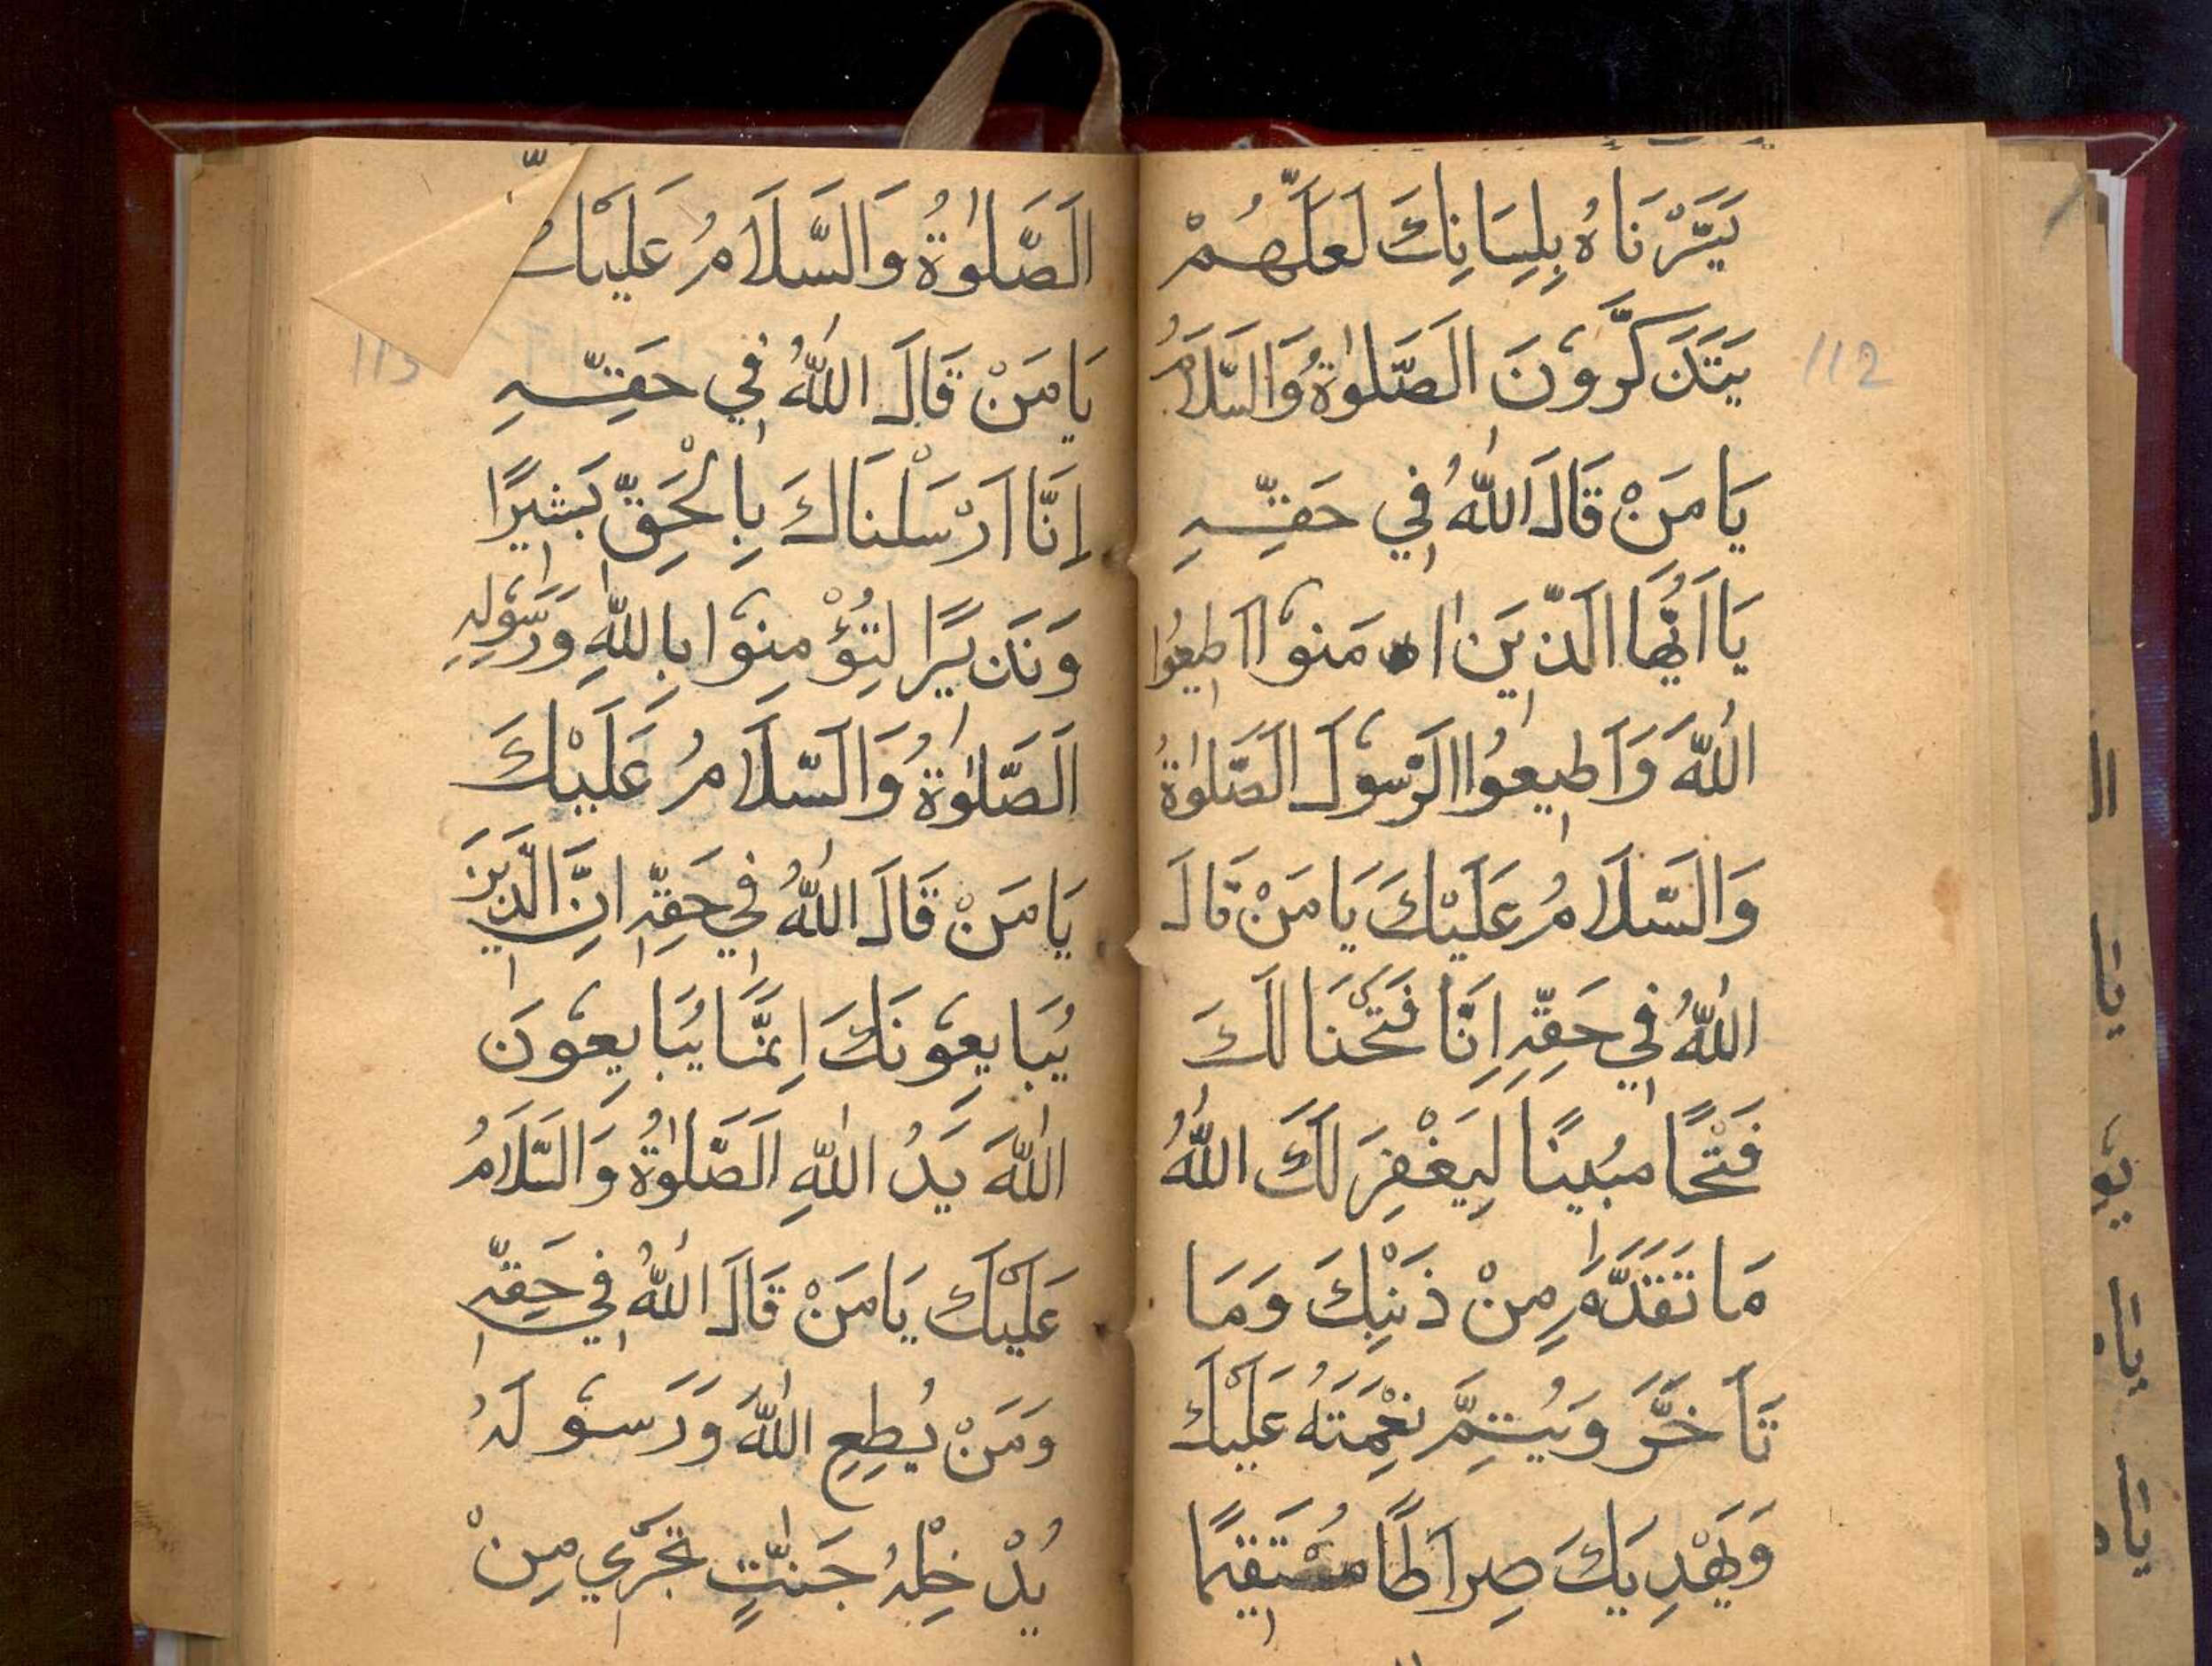 يَسَّرْنَاهُ بِلِسَانِكَ لَعَلَّهُمْ
يَتَذَكَّرُونَ الَصَّلوٰةُ وَالسَّلَامُ
يَا مَنْ قَالَ اللهُ فِي حَقِّهِ
يَا اَيُّهَا الَّذِيَن اٰمَنُوا اَطِيعُوا
اللهَ وَاَطِيعُوا الرَّسُولَ الصَّلوٰةُ
وَالسَّلَامُ عَلَيْكَ يَا مَنْ قَالَ
اللهُ فِي حَقِّهِ اِنَّا فَتَحْنَا لَكَ
فَتْحًا مُبِينًا لِيَغْفِرَ لَكَ اللهُ
مَا تَقَدَّمَ مِنْ ذَنْبِكَ وَمَا
تَاَخَّرَ وَيُتِمَّ نِعْمَتَهُ عَلَيْكَ
وَيَهْدِيَكَ صِرَاطًا مُسْتَقِيمًا
112
الَصَّلوٰةُ وَالسَّلَامُ عَلَيْكَ
يَا مَنْ قَالَ اللهُ فِي حَقِّهِ
اِنَّا اَرْسَلْنَاكَ بِالْحَقِّ بَشِيرًا
وَنَذِيرًا لِتُؤْمِنُوا بِاللهِ وَرَسُولِهِ
الَصَّلوٰةُ وَالسَّلَامُ عَلَيْكَ
يَا مَنْ قَالَ اللهُ فِي حَقِّهِ اِنَّ الَّذِينَ
يُبَايِعُونَكَ اِنَّمَا يُبَايِعُونَ
اللهَ يَدُ اللهِ الَصَّلوٰةُ وَالسَّلَامُ
عَلَيْكَ يَا مَنْ قَالَ اللهُ فِي حَقِّهِ
وَمَنْ يُطِعِ اللهَ وَرَسُولَهُ
يُدْخِلْهُ جَنّٰتٍ تَجْرِي مِنْ
113